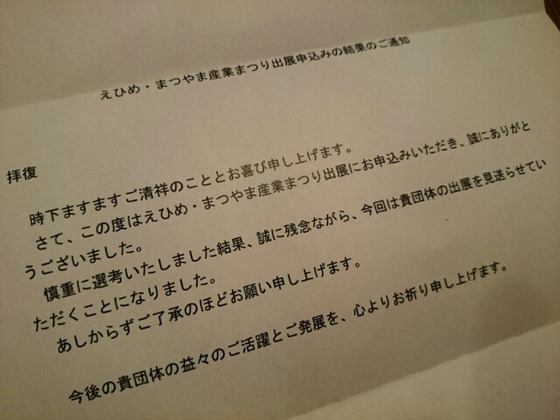 えひめ・まつやま産業まつり出展申込みの結果のご通知
拝復
時下ますますご清祥のこととお喜び申し上げます。
さて、この度はえひめ・まつやま産業まつり出展にお申込みいただき、誠にありがと
うございました。
慎重に選考いたしました結果、誠に残念ながら、今回は貴団体の出展を見送らせてい
ただくことになりました。
あしからずご了承のほどお願い申し上げます。
今後の貴団体の益々のご活躍とご発展を、心よりお祈り申し上げます。